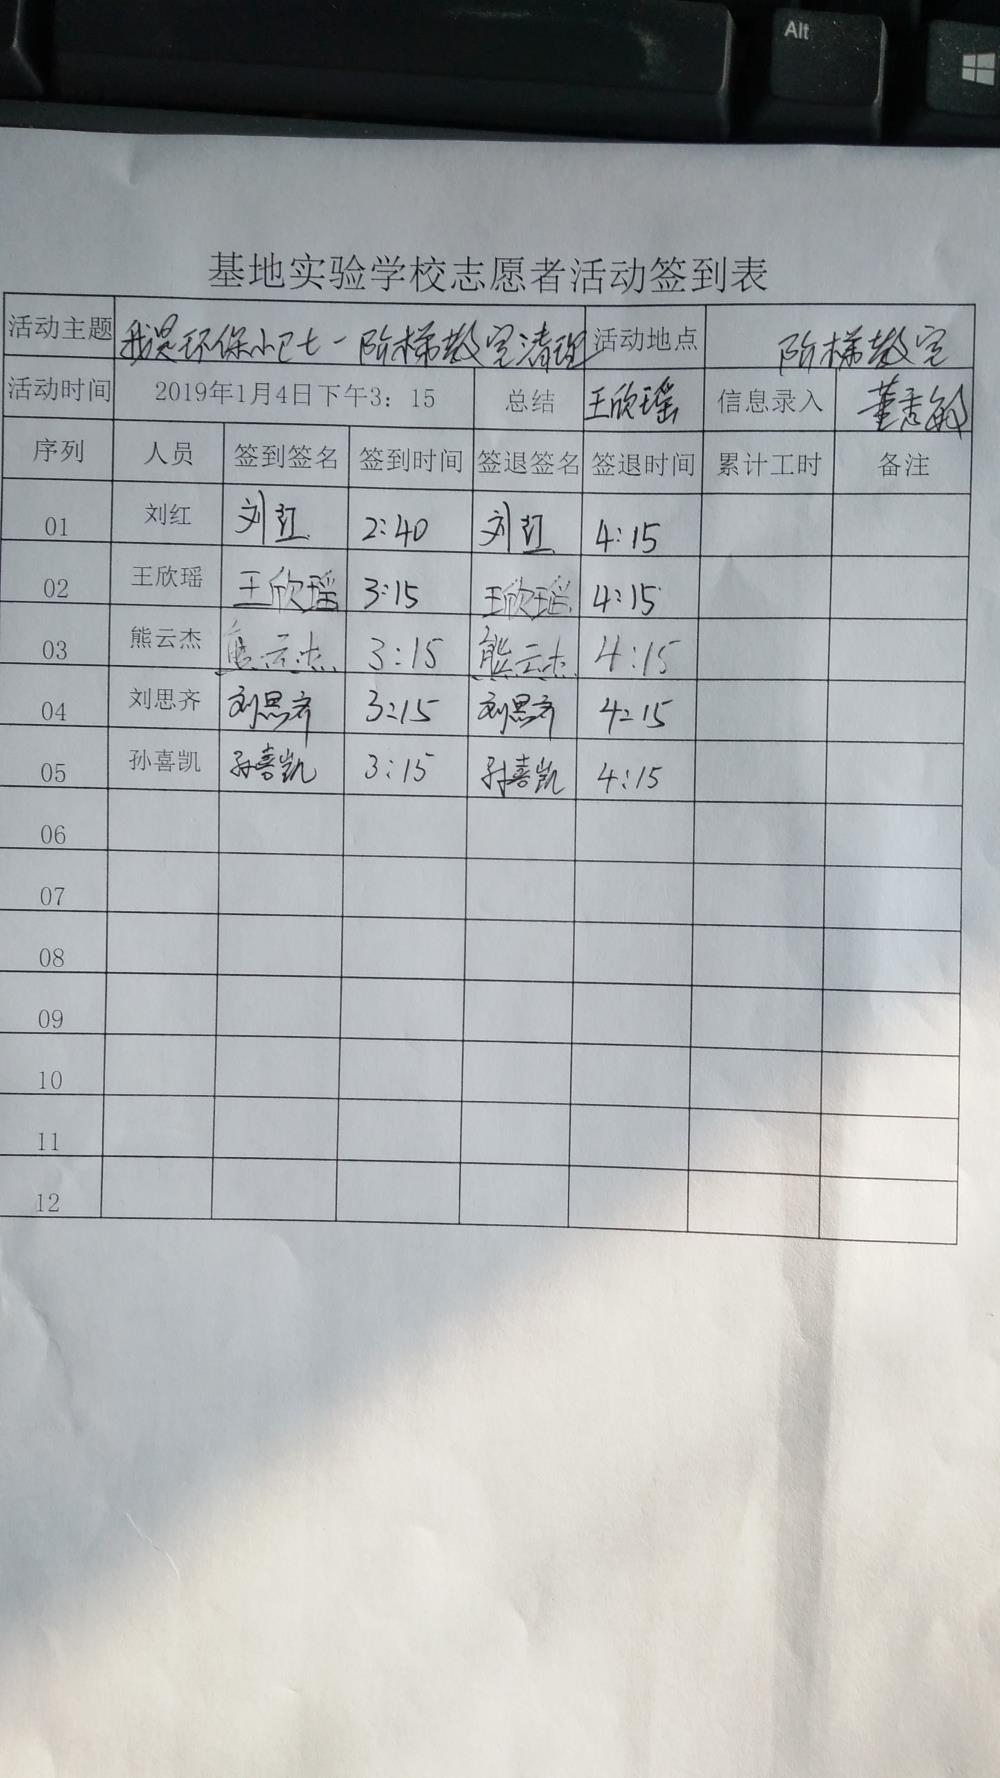 Alt
基地实验学校志愿者活动签到表
活动主题 我是环保小卫士-阶梯教室清理 活动地点 阶梯教室
活动时间 2019年1月4日下午3：15 总结 王欣瑶 信息录入 董秀敏
序列 人员 签到签名 签到时间 签退签名 签退时间 累计工时 备注
01 刘红 刘红 2:40 刘红 4:15
02 王欣瑶 王欣瑶 3:15 王欣瑶 4:15
03 熊云杰 熊云杰 3:15 熊云杰 4:15
04 刘思齐 刘思齐 3:15 刘思齐 4:15
05 孙喜凯 孙喜凯 3:15 孙喜凯 4:15
06
07
08
09
10
11
12